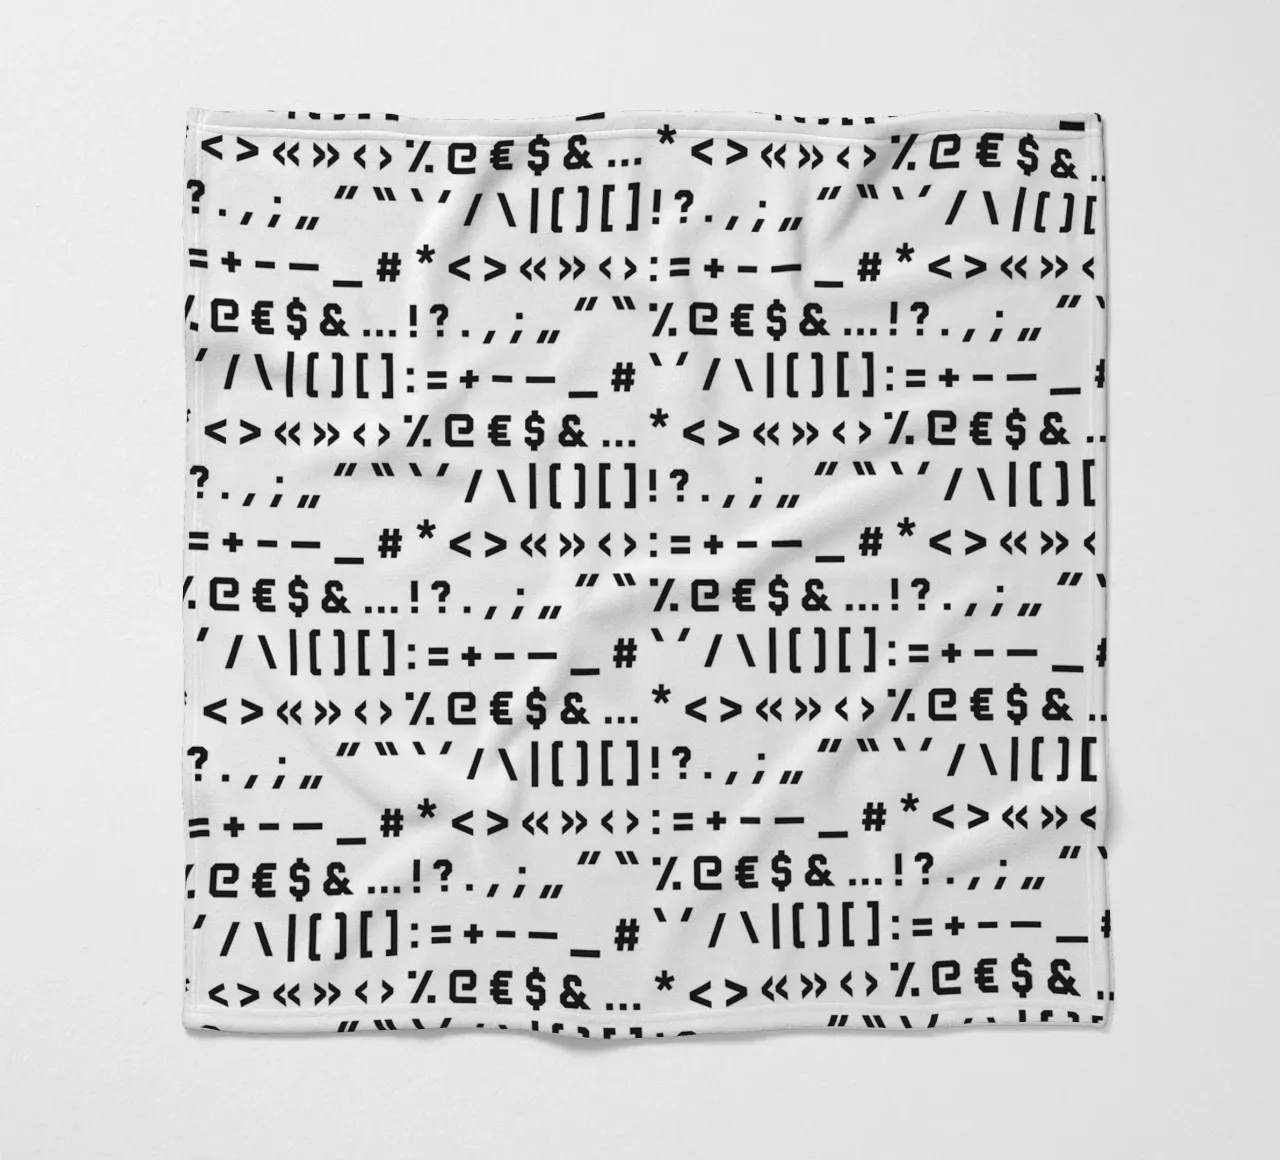 < > « » ‹ › % @ € $ & … * < > « » ‹ › % @ € $ & ..
? . , ; „ " “ ` ´ / \ | ( ) [ ] ! ? . , ; „ " “ ` ´ / \ | ( ) [
= + - — _ # * < > « » ‹ › : = + - — _ # * < > « » ‹
% @ € $ & … ! ? . , ; „ " “ % @ € $ & … ! ? . , ; „ " `
´ / \ | ( ) [ ] : = + - — _ # ` ´ / \ | ( ) [ ] : = + - — _ #
< > « » ‹ › % @ € $ & … * < > « » ‹ › % @ € $ & ..
? . , ; „ " “ ` ´ / \ | ( ) [ ] ! ? . , ; „ " “ ` ´ / \ | ( ) [
= + - — _ # * < > « » ‹ › : = + - — _ # * < > « » ‹
% @ € $ & … ! ? . , ; „ " “ % @ € $ & … ! ? . , ; „ " `
´ / \ | ( ) [ ] : = + - — _ # ` ´ / \ | ( ) [ ] : = + - — _ #
< > « » ‹ › % @ € $ & … * < > « » ‹ › % @ € $ & ..
? . , ; „ " “ ` ´ / \ | ( ) [ ] ! ? . , ; „ " “ ` ´ / \ | ( ) [
= + - — _ # * < > « » ‹ › : = + - — _ # * < > « » ‹
% @ € $ & … ! ? . , ; „ " “ % @ € $ & … ! ? . , ; „ " `
´ / \ | ( ) [ ] : = + - — _ # ` ´ / \ | ( ) [ ] : = + - — _ #
< > « » ‹ › % @ € $ & … * < > « » ‹ › % @ € $ & ..